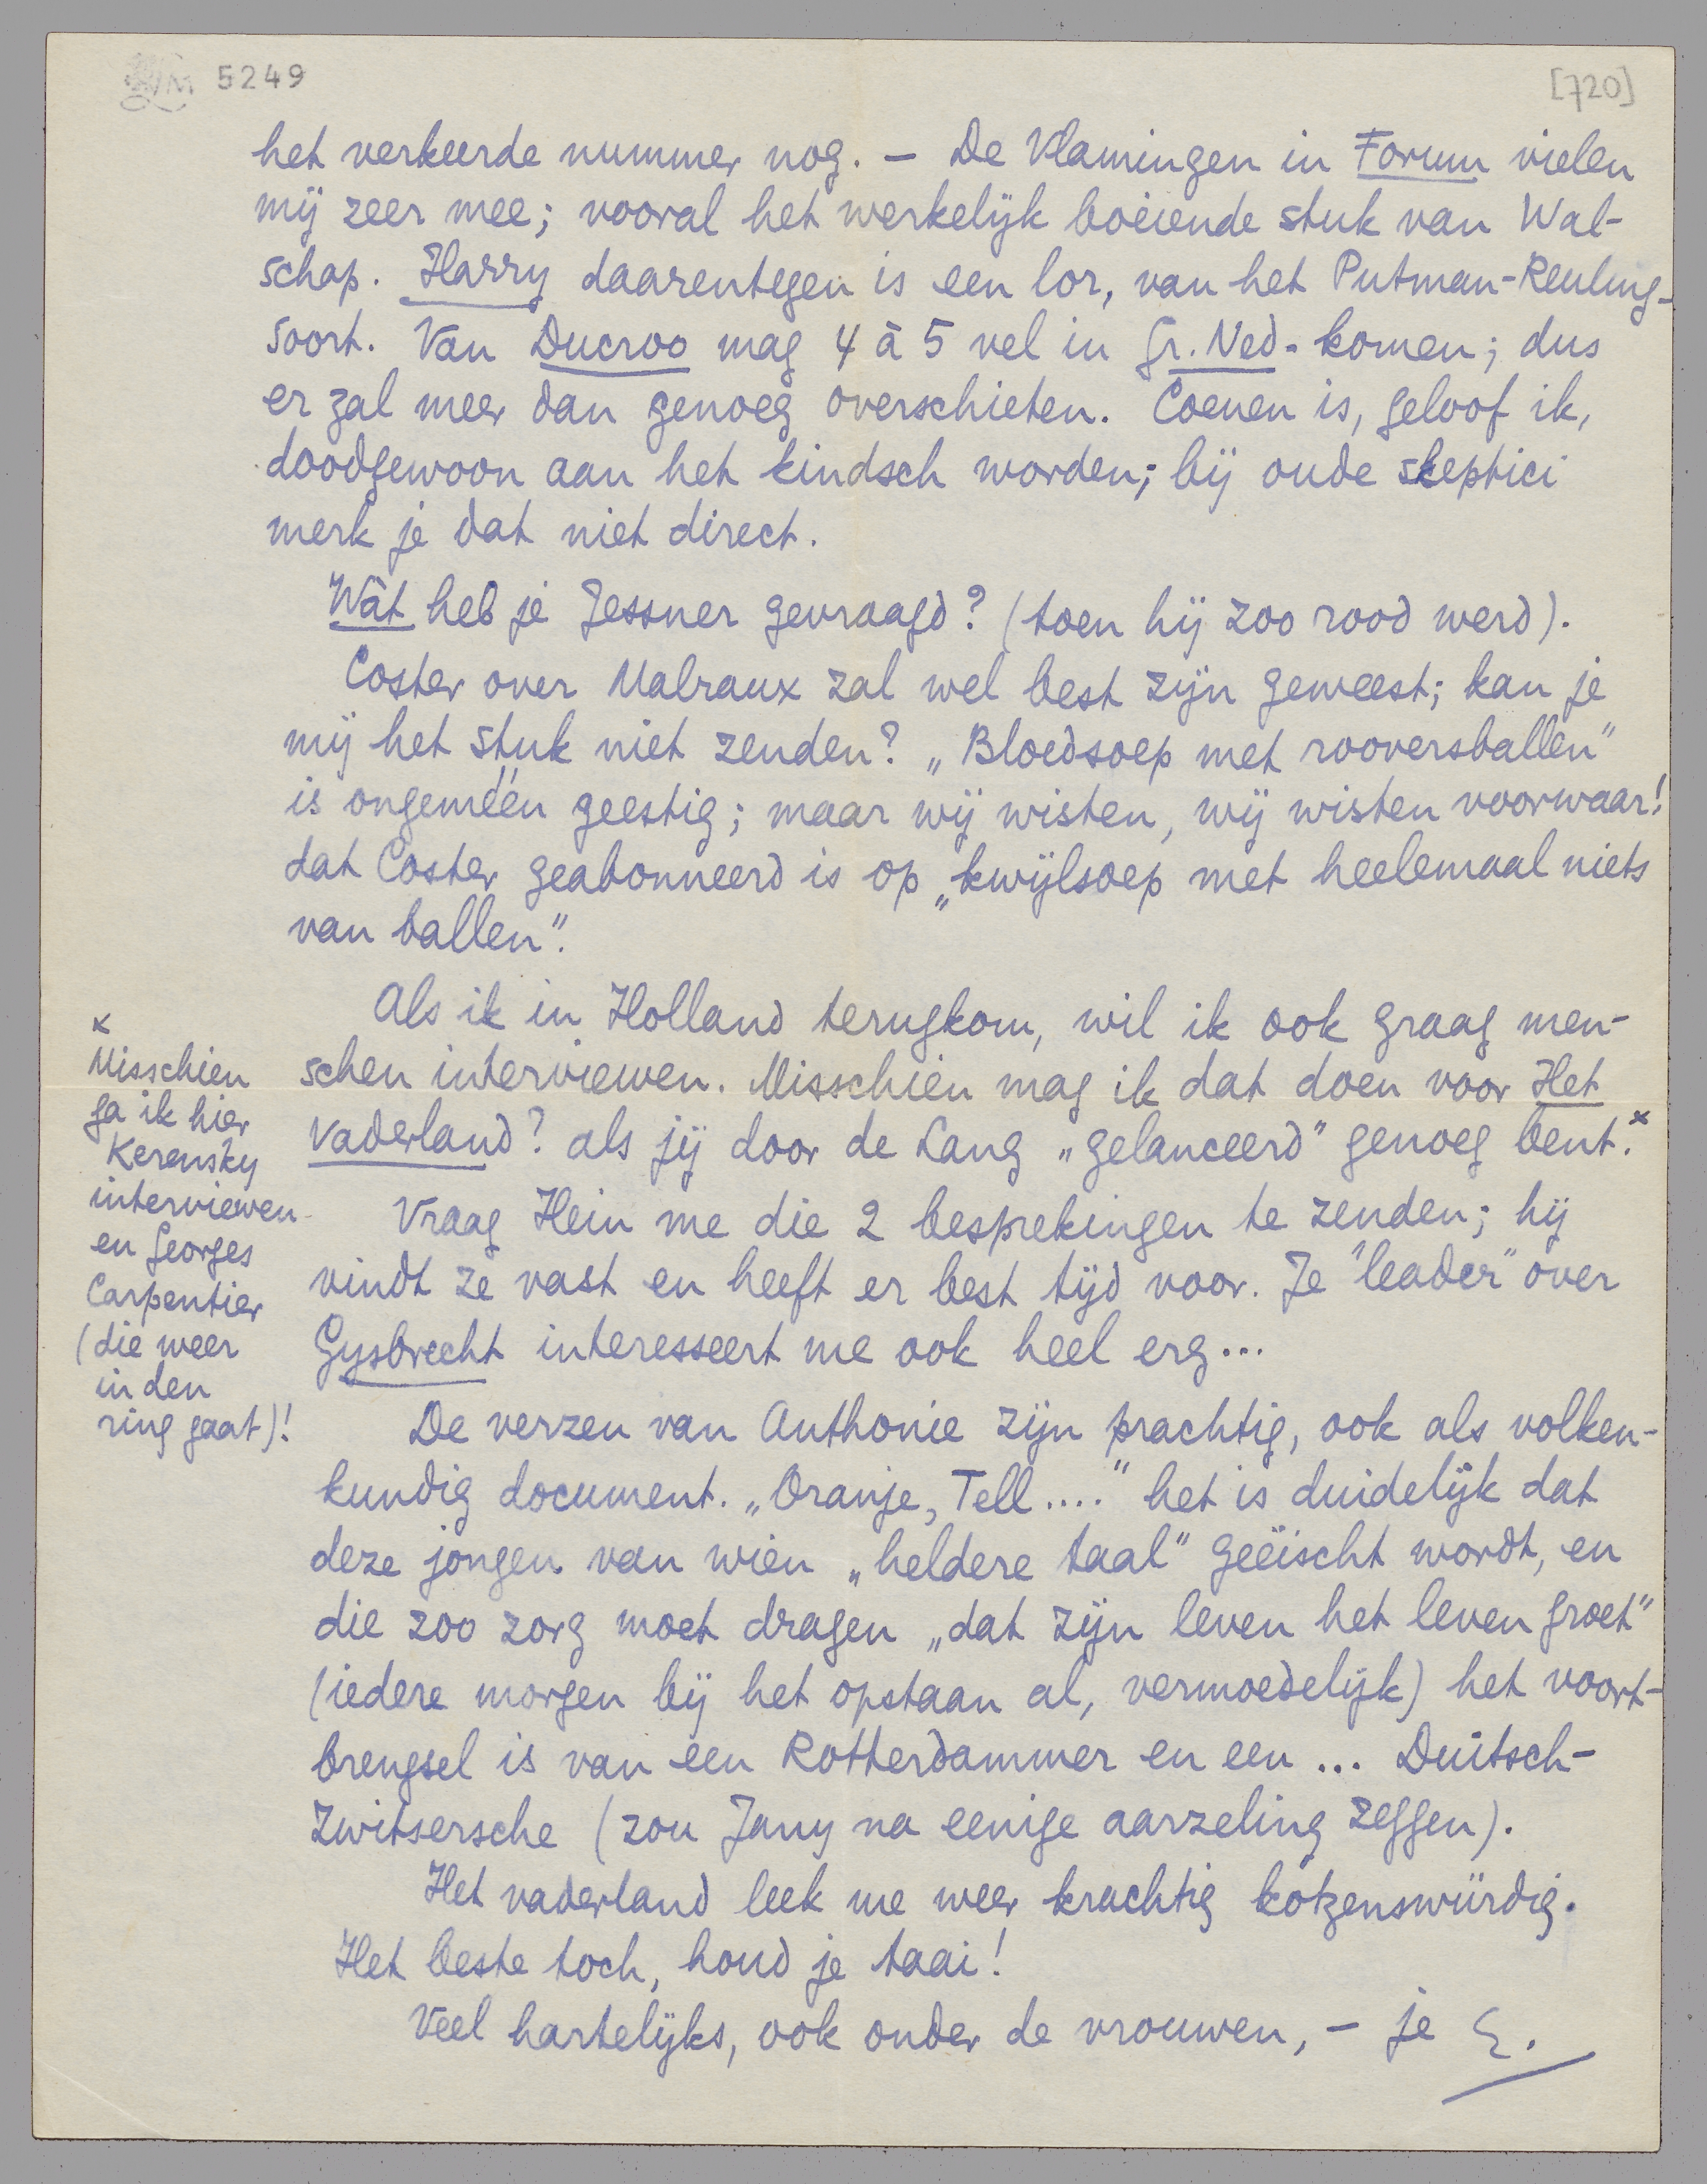 5249
[720]
het verkeerde nummer nog. — De Vlamingen in Forum vielen
mij zeer mee; vooral het werkelijk boeiende stuk van Wal-
schap. Harry daarentegen is een lor, van het Putman-Reuling-
soort. Van Ducroo mag 4 à 5 vel in Gr. Ned. komen; dus
er zal meer dan genoeg overschieten. Coenen is, geloof ik,
doodgewoon aan het kindsch worden; bij oude skeptici
merk je dat niet direct.
Wàt heb je Jessner gevraagd? (toen hij zoo rood werd).
Coster over Malraux zal wel best zijn geweest; kan je
mij het stuk niet zenden? „Bloedsoep met rooversballen”
is ongeméén geestig; maar wij wisten, wij wisten voorwaar!
dat Coster geabonneerd is op „kwijlsoep met heelemaal niets
van ballen”.
Als ik in Holland terugkom, wil ik ook graag men-
schen interviewen. Misschien mag ik dat doen voor Het
Vaderland? als jij door de Lang „gelanceerd” genoeg bent.x
x
Misschien
ga ik hier
Kerensky
interviewen
en Georges
Carpentier
(die weer
in den
ring gaat)!
Vraag Hein me die 2 besprekingen te zenden; hij
vindt ze vast en heeft er best tijd voor. Je "leader" over
Gysbrecht interesseert me ook heel erg...
De verzen van Anthonie zijn prachtig, ook als volken-
kundig document. „Oranje, Tell....” het is duidelijk dat
deze jongen van wien „heldere taal” geëischt wordt, en
die zoo zorg moet dragen „dat zijn leven het leven groet”
(iedere morgen bij het opstaan al, vermoedelijk) het voort-
brengsel is van een Rotterdammer en een ... Duitsch-
Zwitsersche (zou Jany na eenige aarzeling zeggen).
Het vaderland leek me weer krachtig kotzenswürdig.
Het beste toch, houd je taai!
Veel hartelijks, ook onder de vrouwen, — je E.